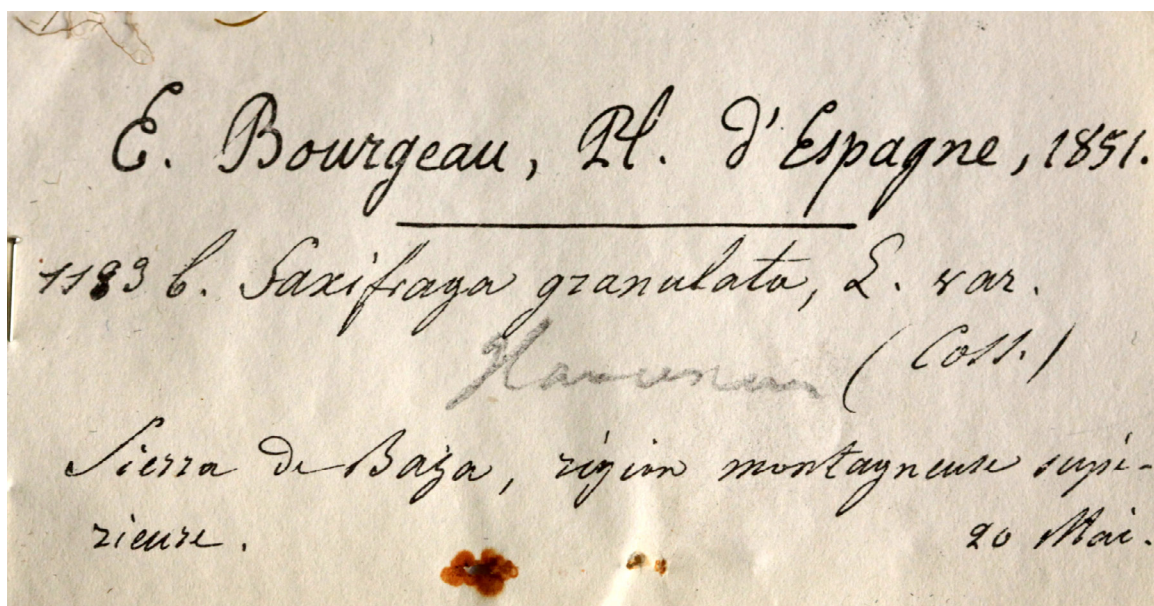 E. Bourgeau, Pl. d'Espagne, 1851.
1183 b. Saxifraga granulata, L. var.
(Coss.)
Sierra de Baza, région montagneuse supé-
rieure. 20 Mai.